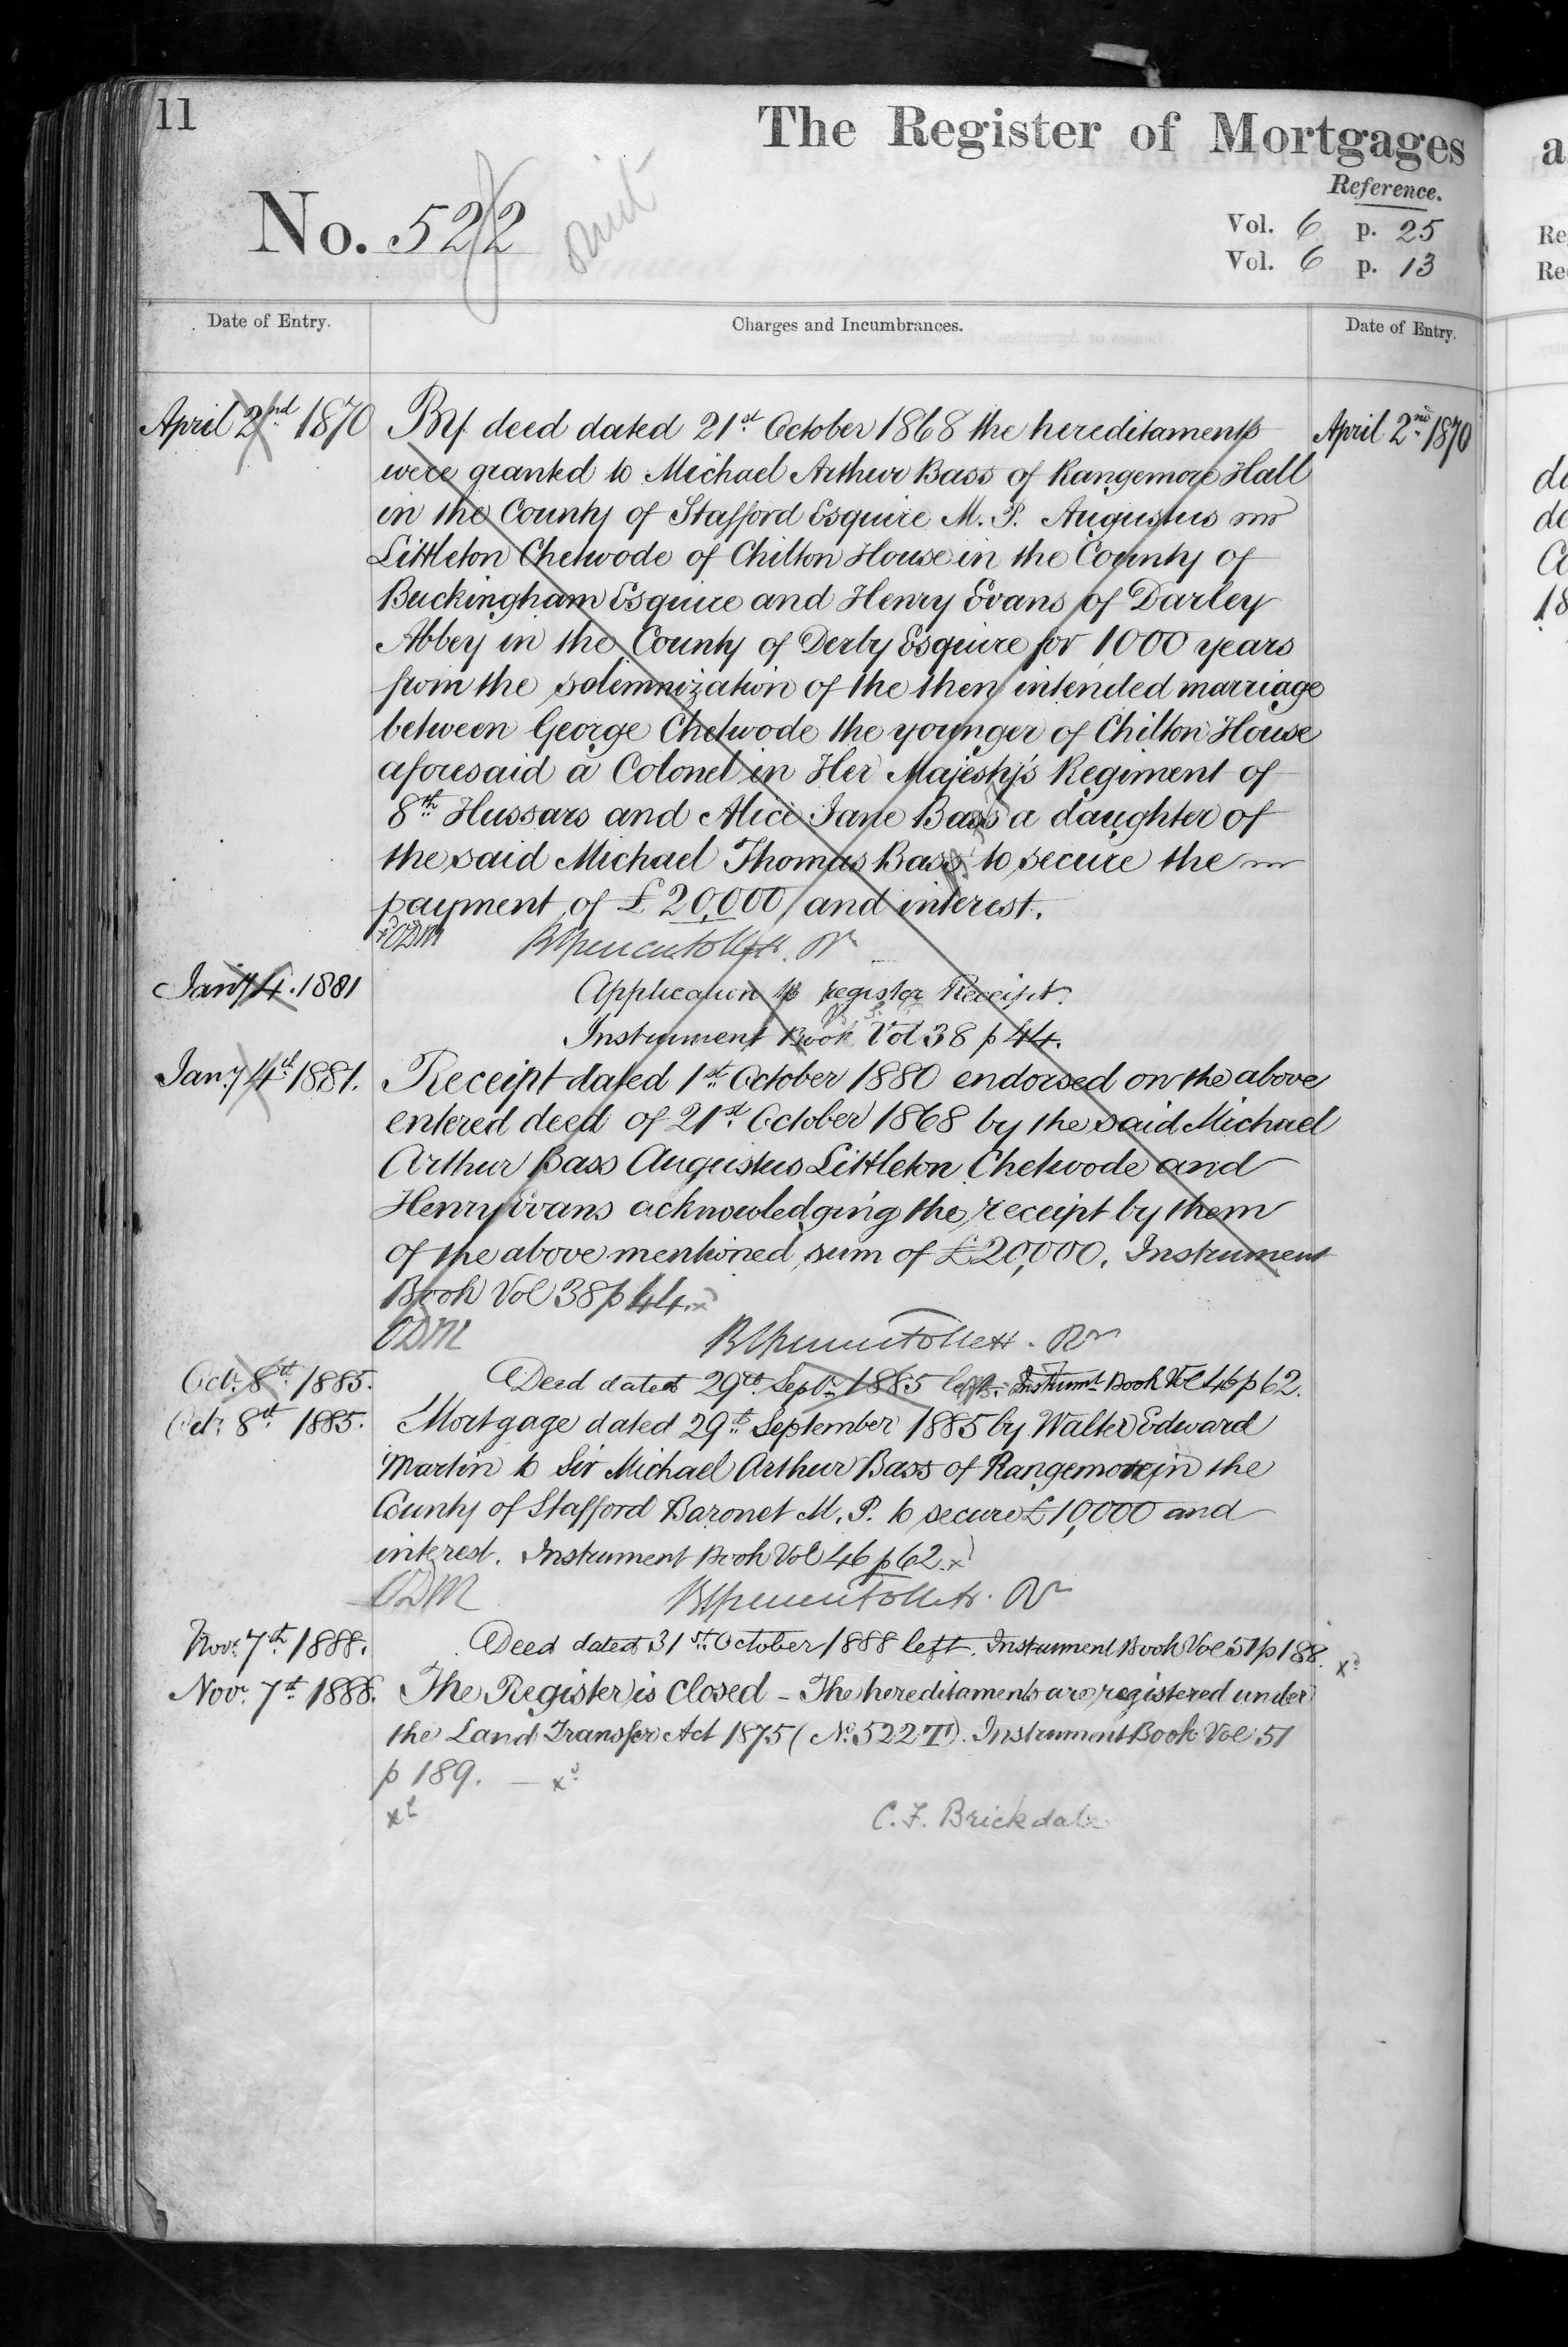 11
The Register of Mortgages
Reference.
No. 522
Vol. 6 p. 25
Vol. 6 p. 13
Date of Entry.
Charges and Incumbrances.
Date of Entry.
April 2nd 1870
By deed dated 21st October 1868 the hereditaments
April 2nd 1870
were granted to Michael Arthur Bass of Rangemore Hall
in the County of Stafford Esquire M. P. Augustus
Littleton Chetwode of Chilton House in the County of
Buckingham Esquire and Henry Evans of Darley
Abbey in the County of Derby Esquire for 1000 years
from the solemnization of the then intended marriage
between George Chetwode the younger of Chilton House
aforesaid a Colonel in Her Majesty's Regiment of
8th Hussars and Alice Jane Bass a daughter of
the said Michael Thomas Bass to secure the
payment of £20,000 and interest.
ODM
Jany 4. 1881
Application to register Receipt.
Instrument Book Vol 38 p 44.
Jany 4th 1881.
Receipt dated 1st October 1880 endorsed on the above
entered deed of 21st October 1868 by the said Michael
Arthur Bass Augustus Littleton Chetwode and
Henry Evans acknowledging the receipt by them
of the above mentioned sum of £20,000. Instrument
Book Vol 38 p 44. x
ODM
Octr 8th 1885.
Deed dated 29th Septr 1885 left. Instrumt Book Vol 46 p 62.
Octr 8th 1885.
Mortgage dated 29th September 1885 by Walter Edward
Martin to Sir Michael Arthur Bass of Rangemore in the
County of Stafford Baronet M. P. to secure £10,000 and
interest. Instrument Book Vol 46 p 62. x
ODM
Novr 7th 1888.
Deed dated 31st October 1888 left. Instrument Book Vol 51 p 188.
Novr 7th 1888.
The Register is closed – The hereditaments are registered under
the Land Transfer Act 1875 (No. 522 T). Instrument Book Vol 51
p 189. —
C. F. Brickdale
a
Re
Re
de
de
Co
18